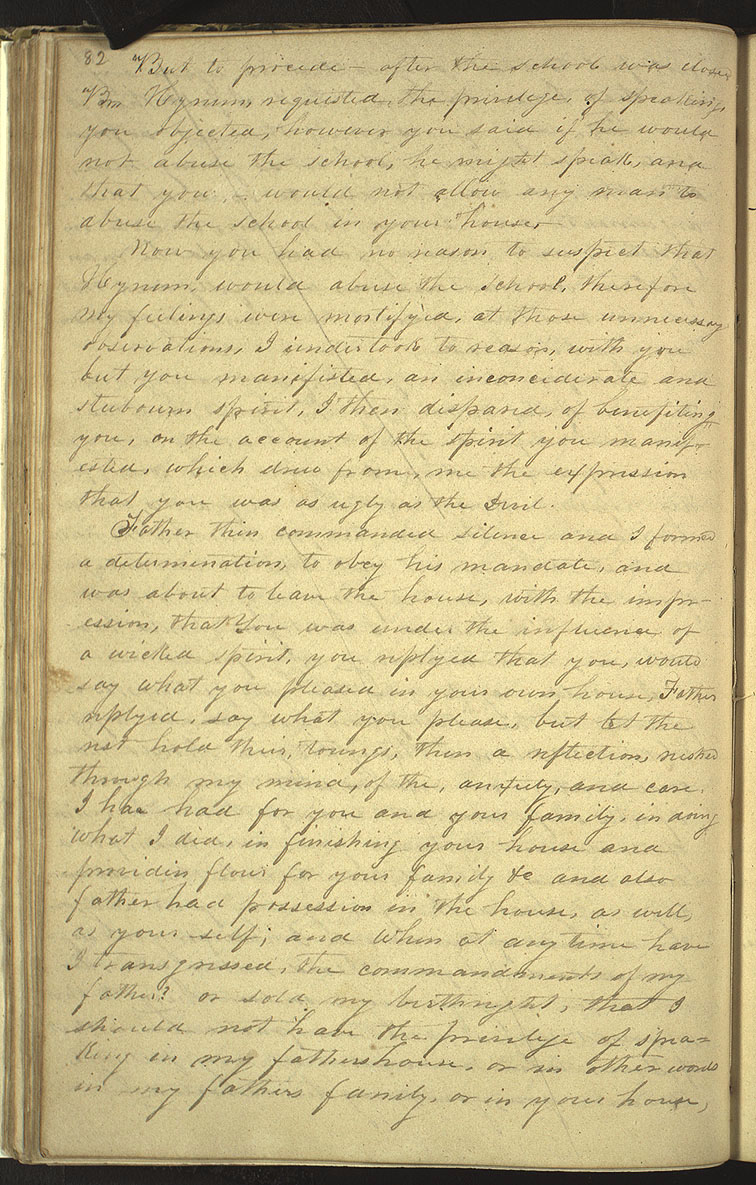 82
But to procede — after the school was closed
Br. Hyrum, requested, the privilege, of speaking,
you objected, however you said if he would
not abuse the school, he might speak, and
that you, would not allow any man to
abuse the school in your house,
Now you had no reason to suspect that
Hyrum, would abuse the school, therefore
my feelings were mortifyed, at those unnecessary
observations, I undertook to reason, with you
but you manifisted, an inconciderate and
stubourn spirit, I then dispared, of benefiting
you, on the account of the spirit you manif-
ested, which drew from, me the expression
that you was as ugly as the Devil.
Father then commanded silence and I formed
a determination, to obey his mandate, and
was about to leave the house, with the impr-
ession, that You was under the influence of
a wicked spirit, you replyed that you, would
say what you pleased in your own house, Father
replyed, say what you please, but let the
rest hold their, toungs, then a reflection, rushed
through my mind, of the, anxiety, and care
I hav had for you and your family, in doing
what I did, in finishing your house and
providin flour for your family &c and also
father had possession in the house, as well,
as your self; and when at any time have
I transgressed, the commandments of my
father? or sold my birthright, that I
should not have the privilege of spea=
king in my fathers house, or in other words
in my fathers family, or in your house,